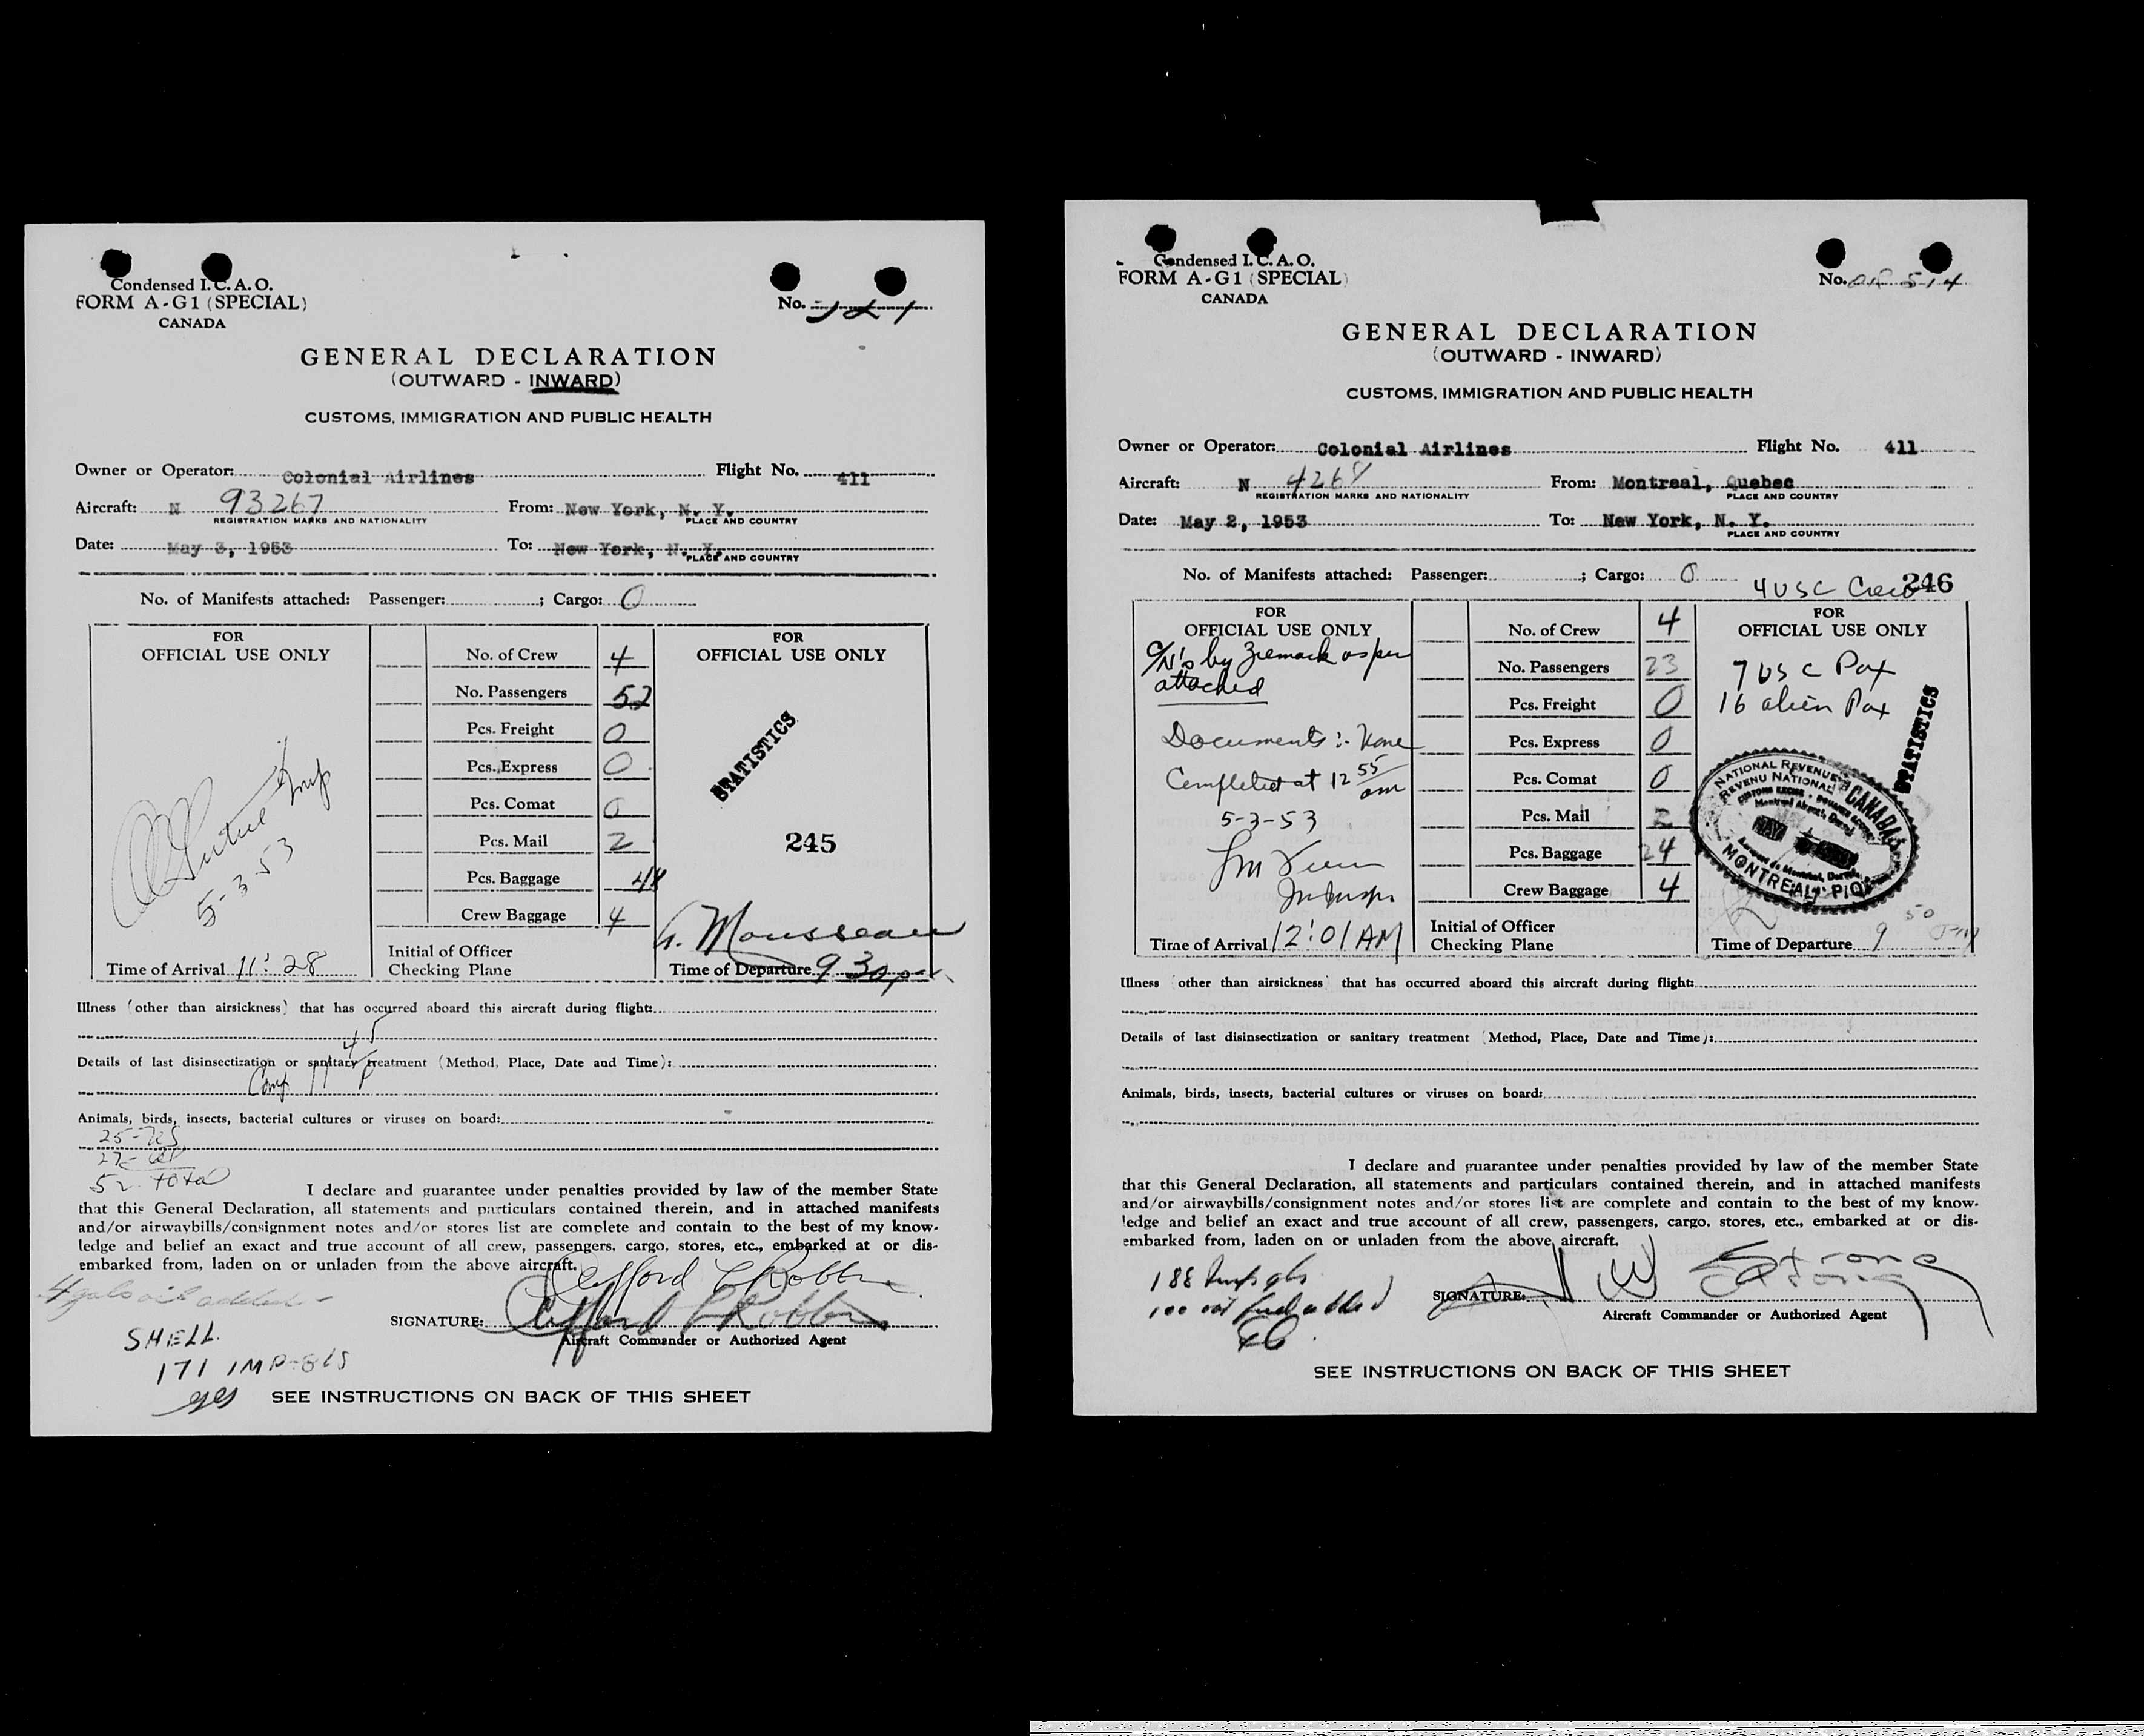 Condensed I. C. A. O.
FORM A-G1 (SPECIAL)
CANADA
No.
GENERAL DECLARATION
(OUTWARD - INWARD)
CUSTOMS, IMMIGRATION AND PUBLIC HEALTH
Owner or Operator: Colonial Airlines Flight No. 411
Aircraft: N 93267 From: New York, N. Y.
REGISTRATION MARKS AND NATIONALITY PLACE AND COUNTRY
Date: May 3, 1953 To: New York, N. Y.
PLACE AND COUNTRY
No. of Manifests attached: Passenger: ; Cargo: 0
FOR
OFFICIAL USE ONLY
5-3-53
Time of Arrival 11:28
No. of Crew 4
No. Passengers 52
Pcs. Freight 0
Pcs. Express 0
Pcs. Comat 0
Pcs. Mail 2
Pcs. Baggage
Crew Baggage 4
Initial of Officer
Checking Plane
FOR
OFFICIAL USE ONLY
STATISTICS
245
Mousseau
Time of Departure 9 30 p
Illness (other than airsickness) that has occurred aboard this aircraft during flight:
45
Details of last disinsectization or sanitary treatment (Method, Place, Date and Time):
Comp 11
Animals, birds, insects, bacterial cultures or viruses on board:
25-US
27-
52 total
I declare and guarantee under penalties provided by law of the member State
that this General Declaration, all statements and particulars contained therein, and in attached manifests
and/or airwaybills/consignment notes and/or stores list are complete and contain to the best of my know-
ledge and belief an exact and true account of all crew, passengers, cargo, stores, etc., embarked at or dis-
embarked from, laden on or unladen from the above aircraft.
Clifford C Robbins
4 gals oil added
SIGNATURE: Clifford C Robbins
Aircraft Commander or Authorized Agent
SHELL
171 IMP-GLS
yes
SEE INSTRUCTIONS ON BACK OF THIS SHEET
Condensed I. C. A. O.
FORM A-G1 (SPECIAL)
CANADA
No.
GENERAL DECLARATION
(OUTWARD - INWARD)
CUSTOMS, IMMIGRATION AND PUBLIC HEALTH
Owner or Operator: Colonial Airlines Flight No. 411
Aircraft: N From: Montreal, Quebec
REGISTRATION MARKS AND NATIONALITY PLACE AND COUNTRY
Date: May 2, 1953 To: New York, N. Y.
PLACE AND COUNTRY
No. of Manifests attached: Passenger: ; Cargo: 0
4 USC Crew 246
FOR
OFFICIAL USE ONLY
by as per
attached
Documents :- None
Completed at 12 55 am
5-3-53
Time of Arrival 12:01 AM
No. of Crew 4
No. Passengers 23
Pcs. Freight 0
Pcs. Express 0
Pcs. Comat 0
Pcs. Mail 2
Pcs. Baggage 24
Crew Baggage 4
Initial of Officer
Checking Plane
FOR
OFFICIAL USE ONLY
7 USC Pax
16 alien Pax
STATISTICS
NATIONAL REVENUE
REVENU NATIONAL
CANADA
MONTREAL, P.Q.
Time of Departure 9 50
Illness (other than airsickness) that has occurred aboard this aircraft during flight:
Details of last disinsectization or sanitary treatment (Method, Place, Date and Time):
Animals, birds, insects, bacterial cultures or viruses on board:
I declare and guarantee under penalties provided by law of the member State
that this General Declaration, all statements and particulars contained therein, and in attached manifests
and/or airwaybills/consignment notes and/or stores list are complete and contain to the best of my know-
ledge and belief an exact and true account of all crew, passengers, cargo, stores, etc., embarked at or dis-
embarked from, laden on or unladen from the above aircraft.
188 Imp gls
100 oct fuel added
SIGNATURE: W Strong
Aircraft Commander or Authorized Agent
SEE INSTRUCTIONS ON BACK OF THIS SHEET